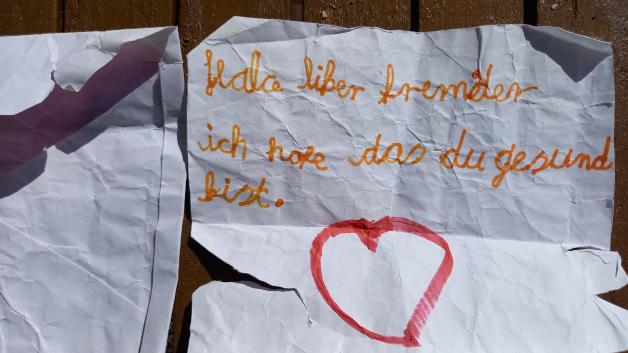 Halo liber fremder
ich hofe das du gesund
bist.